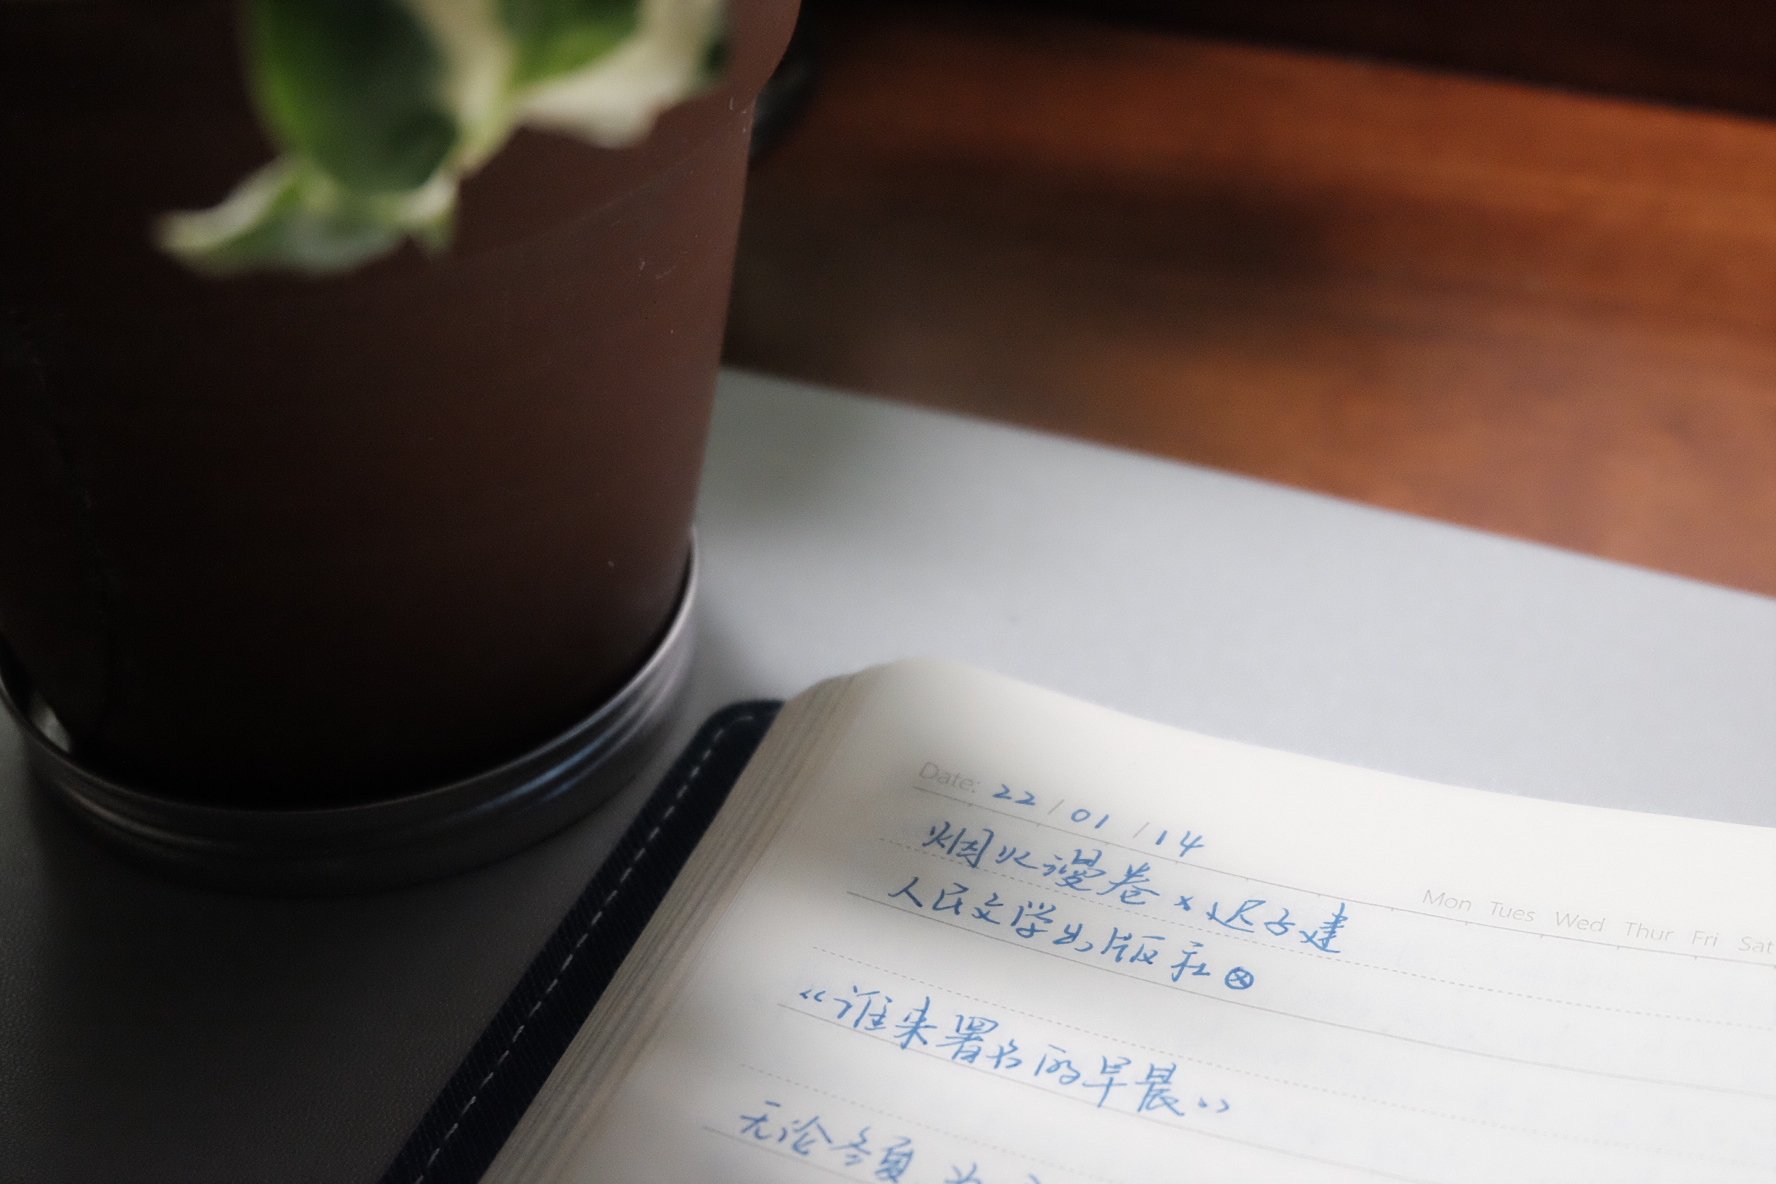 Date: 22 / 01 / 14
Mon Tues Wed Thur Fri Sat
烟火漫卷 × 迟子建
人民文学出版社 ⊗
“谁来署名的早晨”
无论冬夏 为